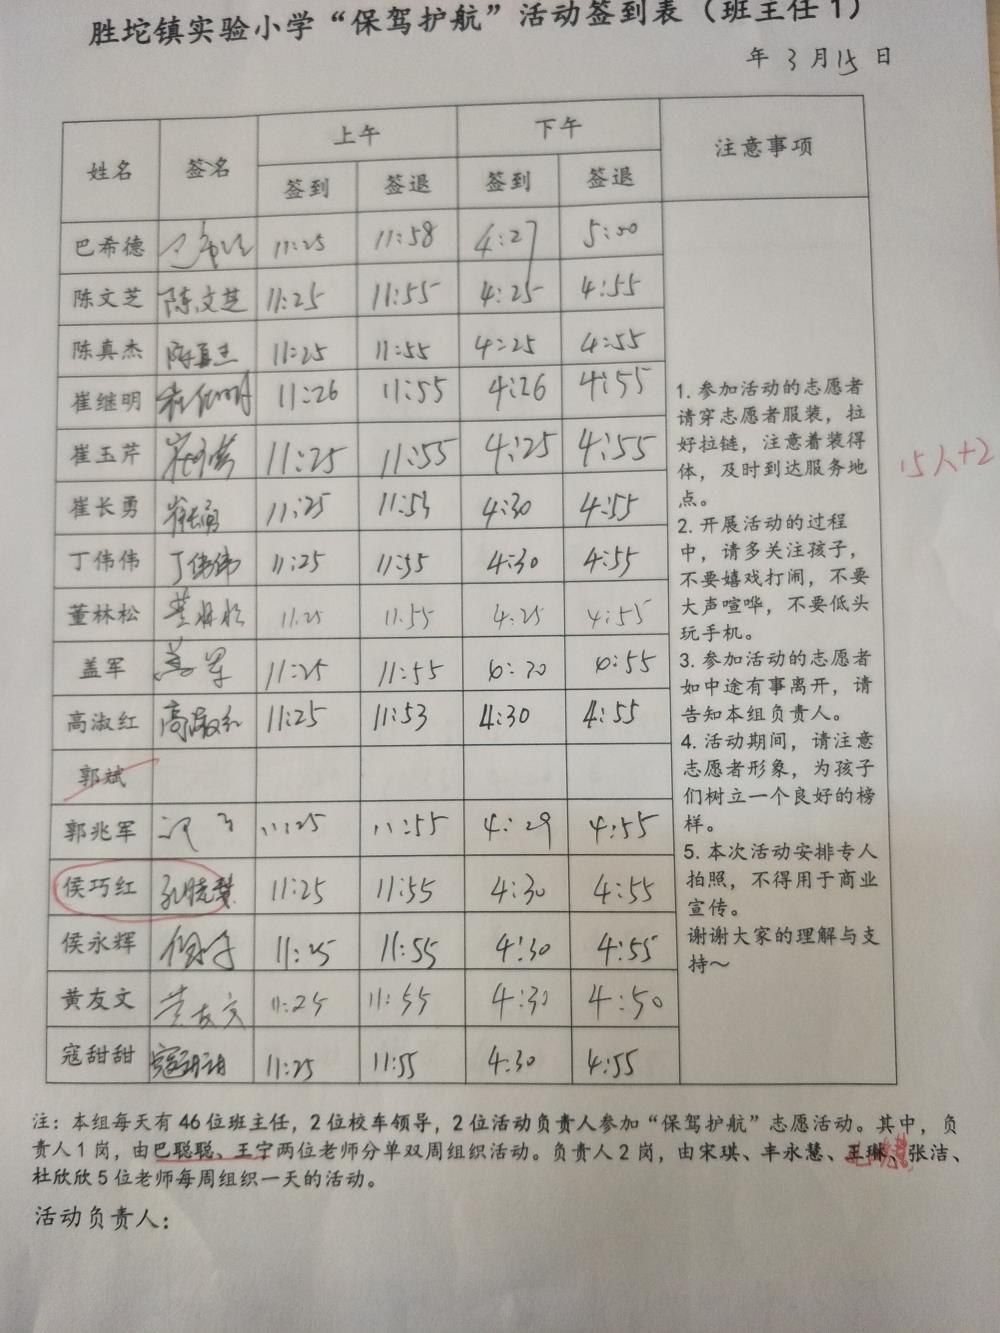 胜坨镇实验小学“保驾护航”活动签到表（班主任1）
年 3 月 15 日
姓名 签名 上午 下午 注意事项
签到 签退 签到 签退
巴希德 11:25 11:58 4:27 5:00
陈文芝 陈文芝 11:25 11:55 4:25 4:55
陈真杰 陈真杰 11:25 11:55 4:25 4:55
崔继明 崔继明 11:26 11:55 4:26 4:55
崔玉芹 崔玉芹 11:25 11:55 4:25 4:55
崔长勇 崔长勇 11:25 11:53 4:30 4:55
丁伟伟 丁伟伟 11:25 11:55 4:30 4:55
董林松 董林松 11.25 11.55 4:25 4:55
盖军 盖军 11:25 11:55 4:55
高淑红 高淑红 11:25 11:53 4:30 4:55
郭斌
郭兆军 11:25 11:55 4:29 4:55
侯巧红 孔晓慧 11:25 11:55 4:30 4:55
侯永辉 11:25 11:55 4:30 4:55
黄友文 黄友文 11:25 11:55 4:30 4:50
寇甜甜 寇甜甜 11:25 11:55 4:30 4:55
1. 参加活动的志愿者
请穿志愿者服装，拉
好拉链，注意着装得
体，及时到达服务地
点。
2. 开展活动的过程
中，请多关注孩子，
不要嬉戏打闹，不要
大声喧哗，不要低头
玩手机。
3. 参加活动的志愿者
如中途有事离开，请
告知本组负责人。
4. 活动期间，请注意
志愿者形象，为孩子
们树立一个良好的榜
样。
5. 本次活动安排专人
拍照，不得用于商业
宣传。
谢谢大家的理解与支
持～
15人+2
注：本组每天有46位班主任，2位校车领导，2位活动负责人参加“保驾护航”志愿活动。其中，负
责人1岗，由巴聪聪、王宁两位老师分单双周组织活动。负责人2岗，由宋琪、丰永慧、王琳、张洁、
杜欣欣5位老师每周组织一天的活动。
活动负责人：